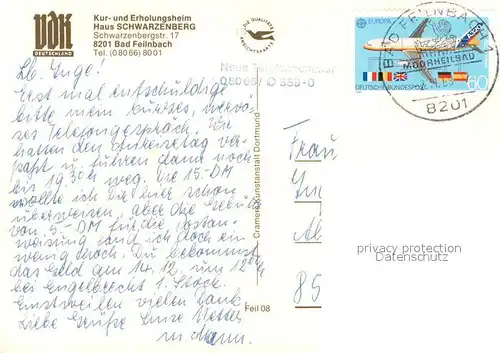 VdK
DEUTSCHLAND
Kur- und Erholungsheim
Haus SCHWARZENBERG
Schwarzenbergstr. 17
8201 Bad Feilnbach
Tel. (08066) 8001
DIE QUALITÄTS
ANSICHTSKARTE
Neue Telefonnummer
08066/
EUROPA
A320
60
DEUTSCHE BUNDESPOST
BAD FEILNBACH
MOORHEILBAD
8201
Lb. Inge!
Erst mal entschuldige
bitte mein kurzes, nervö-
ses Telefongespräch. Wir
hatten den Anreisetag ver-
paßt u. fuhren dann noch
bis 19.30 h weg. Die 15.-DM
wollte ich Dir hier schon
überweisen, aber die Gebühr
von 5.-DM für die Postan-
weisung fand ich doch ein
wenig hoch. Du bekommst
das Geld am 14.12. um 12 h
bei Engelbrecht 1. Stock.
Einstweilen vielen Dank
Liebe Grüße
u. Mann.
Cramers Kunstanstalt Dortmund
Feil 08
Frau
85
privacy protection
Datenschutz